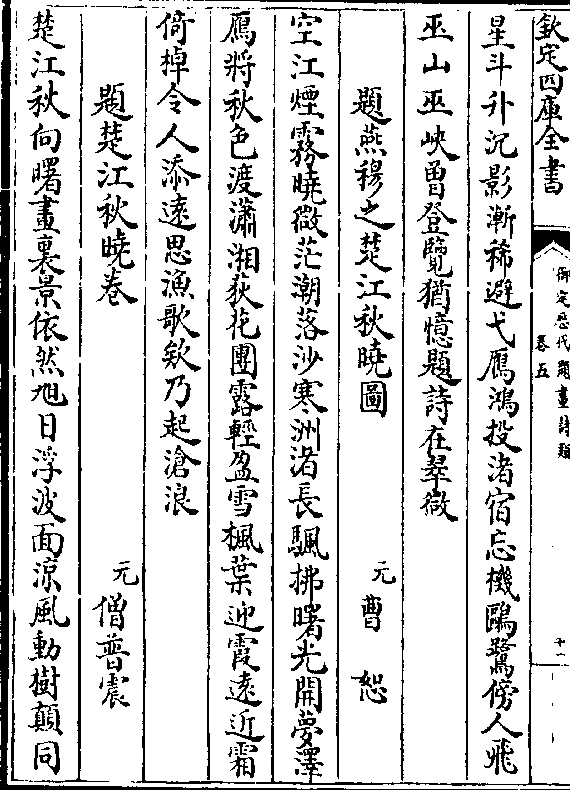 欽定四庫全書
御定歷代題畫詩類
卷五
十一
星斗升沉影漸稀避弋鴈鴻投渚宿忘機鷗鷺傍人飛
巫山巫峽曽登覽猶憶題詩在翠微
題燕穆之楚江秋曉圖
元 曹 恕
空江煙霧曉微茫潮落沙寒洲渚長颿拂曙光開夢澤
鴈將秋色渡瀟湘荻花團露輕盈雪楓葉迎霞遠近霜
倚棹令人添遠思漁歌欸乃起滄浪
題楚江秋曉卷
元 僧普震
楚江秋向曙畫裏景依然旭日浮波面涼風動樹顛同